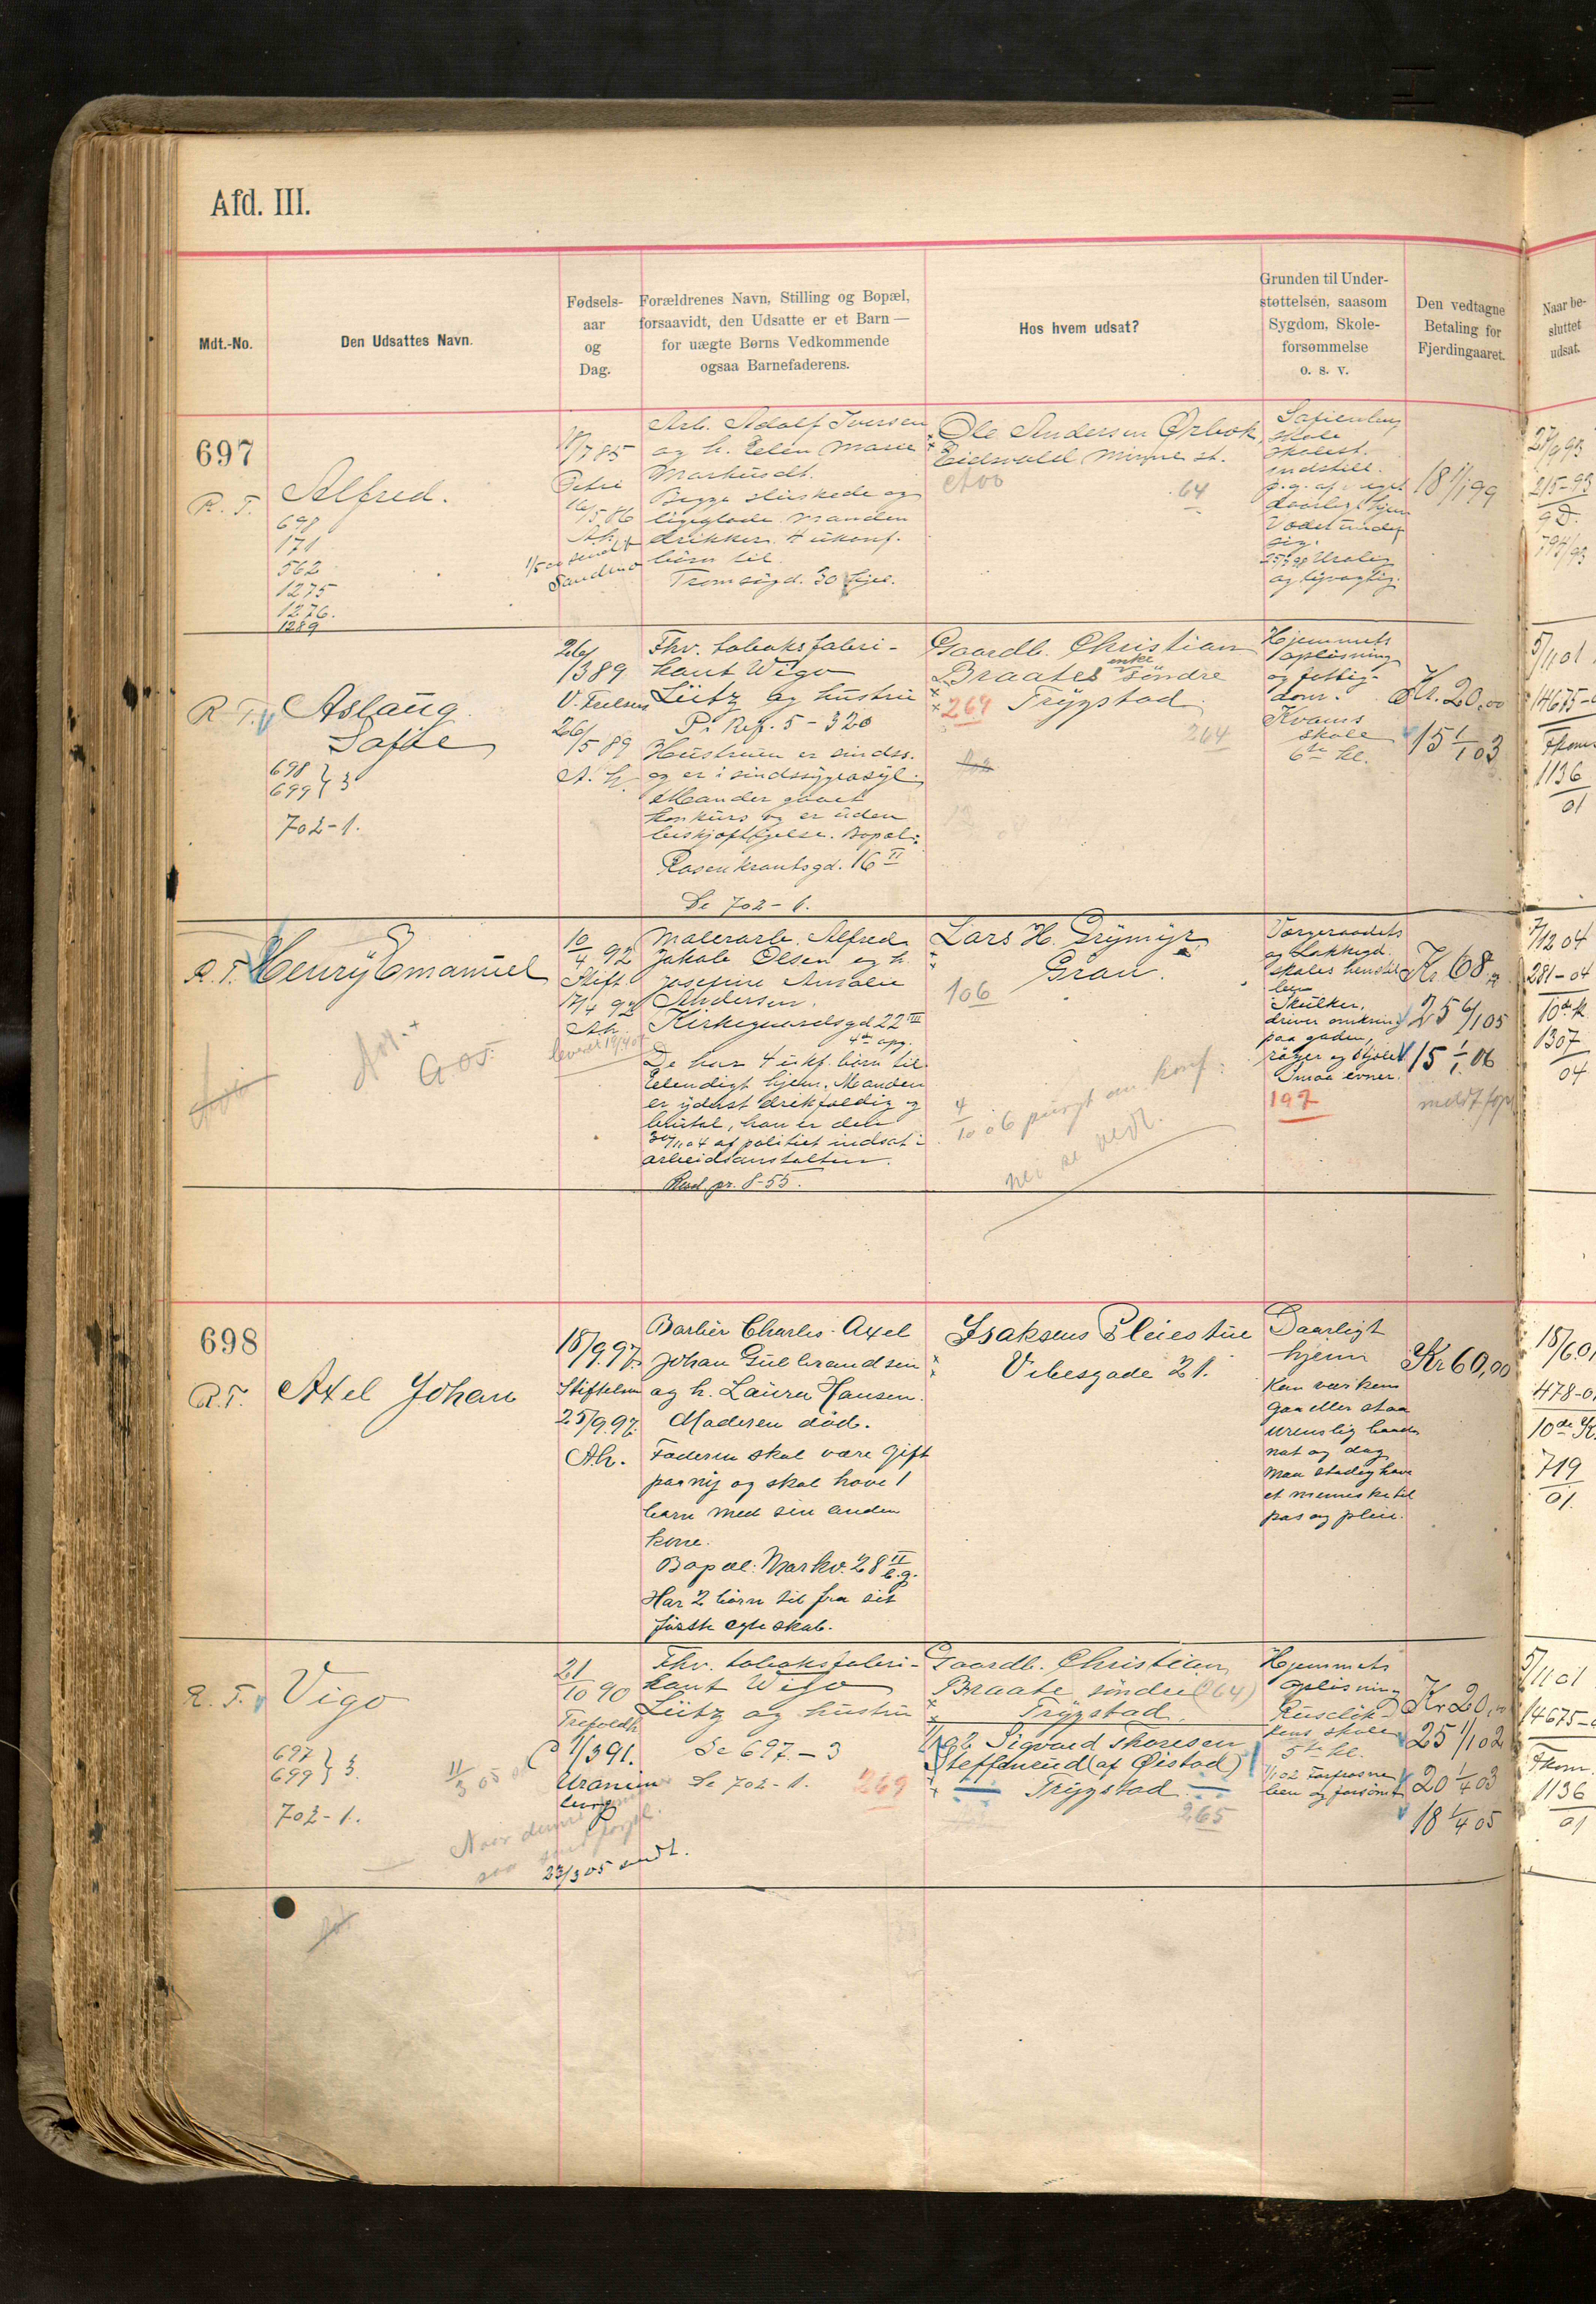 Afd. III.
Mdt.-No.
Den Udsattes Navn.
Fødsels-
aar
og
Dag.
Forældrenes Navn, Stilling og Bopæl,
forsaavidt, den Udsatte er et Barn —
for uægte Børns Vedkommende
ogsaa Barnefaderens.
Hos hvem udsat?
Grunden til Under-
støttelsen, saasom
Sygdom, Skole-
forsømmelse
o. s. v.
Den vedtagne
Betaling for
Fjerdingaaret.
Naar be-
sluttet
udsat.
697
R. T.
Alfred.
698
171
562
1275
1276.
1289
/7 85
Petri
16/5 86
Ah.
Arb. Adolf Iversen
og h. Elen Marie
Markusdt.
Begge slurskede og
ligeglade. Manden
drikker. 4 ukonf.
børn til
Tromsögd. 30
Ole Andersen Ørbek
Eidsvold Minne st.
64
skole
indstill.
og
18 1/1 99
215-93
R. T.
Aslaug
Sofie
698 } 3
699
702-1.
26/3 89
26/5 89
A. h.
Fhv. tobaksfabri-
kant Wigo
Lütz og hustru
Pr Ref. 5 - 320
Hustruen er sindss.
og er i sindssygeasyl.
Manden gaaet
konkurs og er uden
beskjæftigelse. Bopæl:
Rosenkrantsgd. 16 II
Se 702-1.
Gaardb. Christian
Braates enke söndre
264 Trygstad
264
Hjemmets
opløsning
og fattig-
dom.
Kvams
skole
6te kl.
Kr. 20,00
15 1/1 03
5/1 01
14675-
1136
01
R. T.
Henry Emanuel
10/4 92
Stift.
17/4 92
Ah.
Malerarb. Alfred
Jakob Olsen og h.
Josefine Amalie
Andersen.
Kirkegaardsgd 22 III
4de opg.
De har 4 ukf. børn til
Elendigt hjem. Manden
er yderst drikfældig og
brutal, han er den
30/11 04 af politiet indsat i
arbeidsanstalten.
Rod. pr. 8-55.
Lars H. Grymyr
Gran.
106
4/10 06 purgt om konf.
Værgeraadets
og Lakkegd.
skoles henstil
len
Skulker,
driver omkring
paa gaden,
røger og stjæler
Smaa evner.
197
Kr. 68
25 6/1 05
15 1/1 06
7/12 04
281-04
10de K.
1307
04
698
R.T.
Axel Johan
18/9.97.
Stiftelsen
25/9.97.
Ah.
Barbér Charles Axel
Johan Gulbrandsen
og h. Laura Hansen.
Moderen død.
Faderen skal være gift
paa ny og skal have 1
barn med sin anden
kone.
Bopæl: Markv. 28 II
b.g.
Har 2 børn til fra sit
første egteskab.
Isaksens Pleiestue
Vibesgade 21.
Daarligt
hjem
Kan værken
gaa eller staa
urenslig baade
nat og dag
Maa stadig have
et menneske til
pas og pleie.
Kr 60,00
18/6.01
478-01
10de K.
719
01.
R. T.
Vigo
697 } 3.
699
702-1.
21/10 90
Trefoldh.
1/3 91.
Uranien
borg
23/3 05 sendt.
Fhv. tobaksfabri-
kant Wigo
Lütz og hustru
Se 697-3
Se 702-1.
Gaardb. Christian
Braate söndre (264)
Trygstad.
Sigvard Thoresen
Steffenrud (af Øistad)
Trygstad
269
265
Hjemmets
opløsning
Ruselök-
kens skole
5te kl.
1/1 02 Forfrosne
ben og forsömt
Kr 20,00
25 1/1 02
20 1/4 03
18 1/4 05
5/1 01
14675-
1136
01